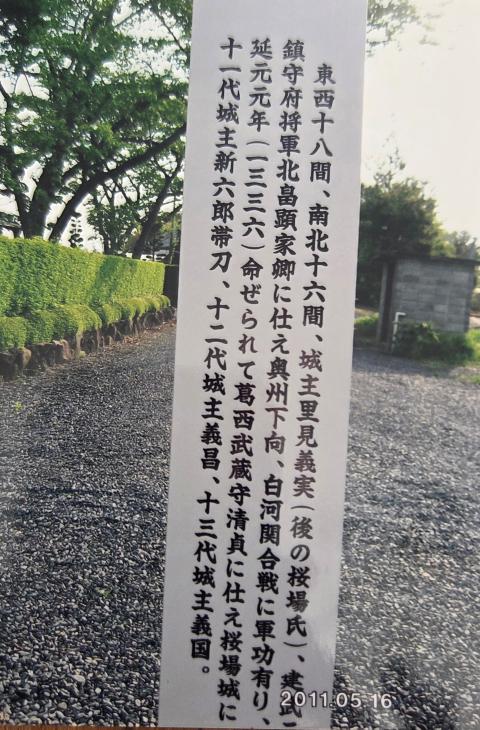 東西十八間、南北十六間、城主里見義実(後の桜場氏)、建武二
鎮守府将軍北畠顕家卿に仕え奥州下向、白河関合戦に軍功有り、
延元元年(一三三六)命ぜられて葛西武蔵守清貞に仕え桜場城に
十一代城主新六郎帯刀、十二代城主義昌、十三代城主義国。
2011.05.16